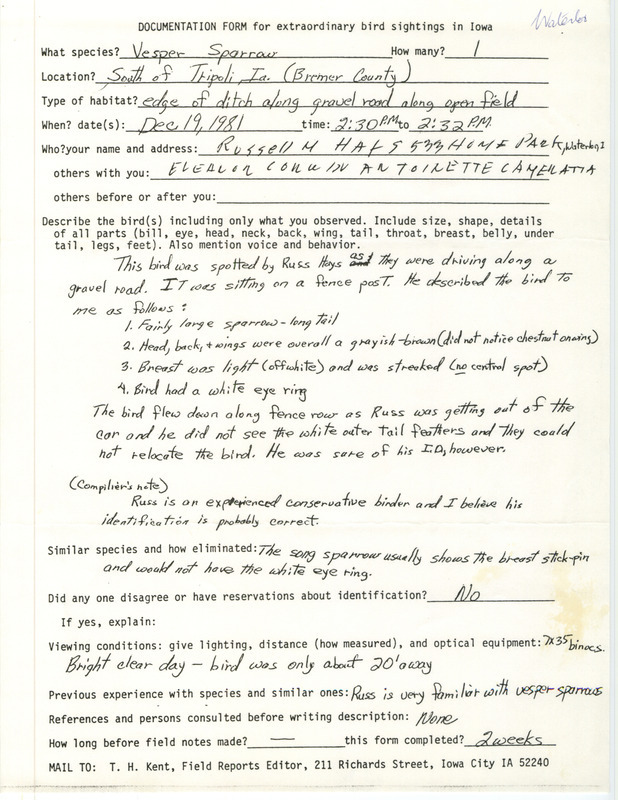 Waterloo
DOCUMENTATION FORM for extraordinary bird sightings in Iowa
What species? Vesper Sparrow How many? 1
Location? South of Tripoli, Ia. (Bremer County)
Type of habitat? edge of ditch along gravel road along open field
When? date(s): Dec 19, 1981 time: 2:30 P.M. to 2:32 P.M.
Who? your name and address: Russell M HAYS 533 HOME PARK, Waterloo, I
others with you: ELEANOR CORWIN ANTOINETTE CAMERATA
others before or after you:
Describe the bird(s) including only what you observed. Include size, shape, details
of all parts (bill, eye, head, neck, back, wing, tail, throat, breast, belly, under
tail, legs, feet). Also mention voice and behavior.
This bird was spotted by Russ Hays as they were driving along a
gravel road. IT was sitting on a fence post. He described the bird to
me as follows:
1. Fairly large sparrow - long tail
2. Head, back, + wings were overall a grayish-brown (did not notice chestnut on wing)
3. Breast was light (offwhite) and was streaked (no central spot)
4. Bird had a white eye ring
The bird flew down along fence row as Russ was getting out of the
car and he did not see the white outer tail feathers and they could
not relocate the bird. He was sure of his I.D., however.
(Compilier's note)
Russ is an experienced conservative birder and I believe his
identification is probably correct.
Similar species and how eliminated: The song sparrow usually shows the breast stick-pin
and would not have the white eye ring.
Did any one disagree or have reservations about identification? No
If yes, explain:
Viewing conditions: give lighting, distance (how measured), and optical equipment: 7x35 binocs.
Bright clear day - bird was only about 20' away
Previous experience with species and similar ones: Russ is very familiar with vesper sparrows
References and persons consulted before writing description: None
How long before field notes made? — this form completed? 2 weeks
MAIL TO: T. H. Kent, Field Reports Editor, 211 Richards Street, Iowa City IA 52240